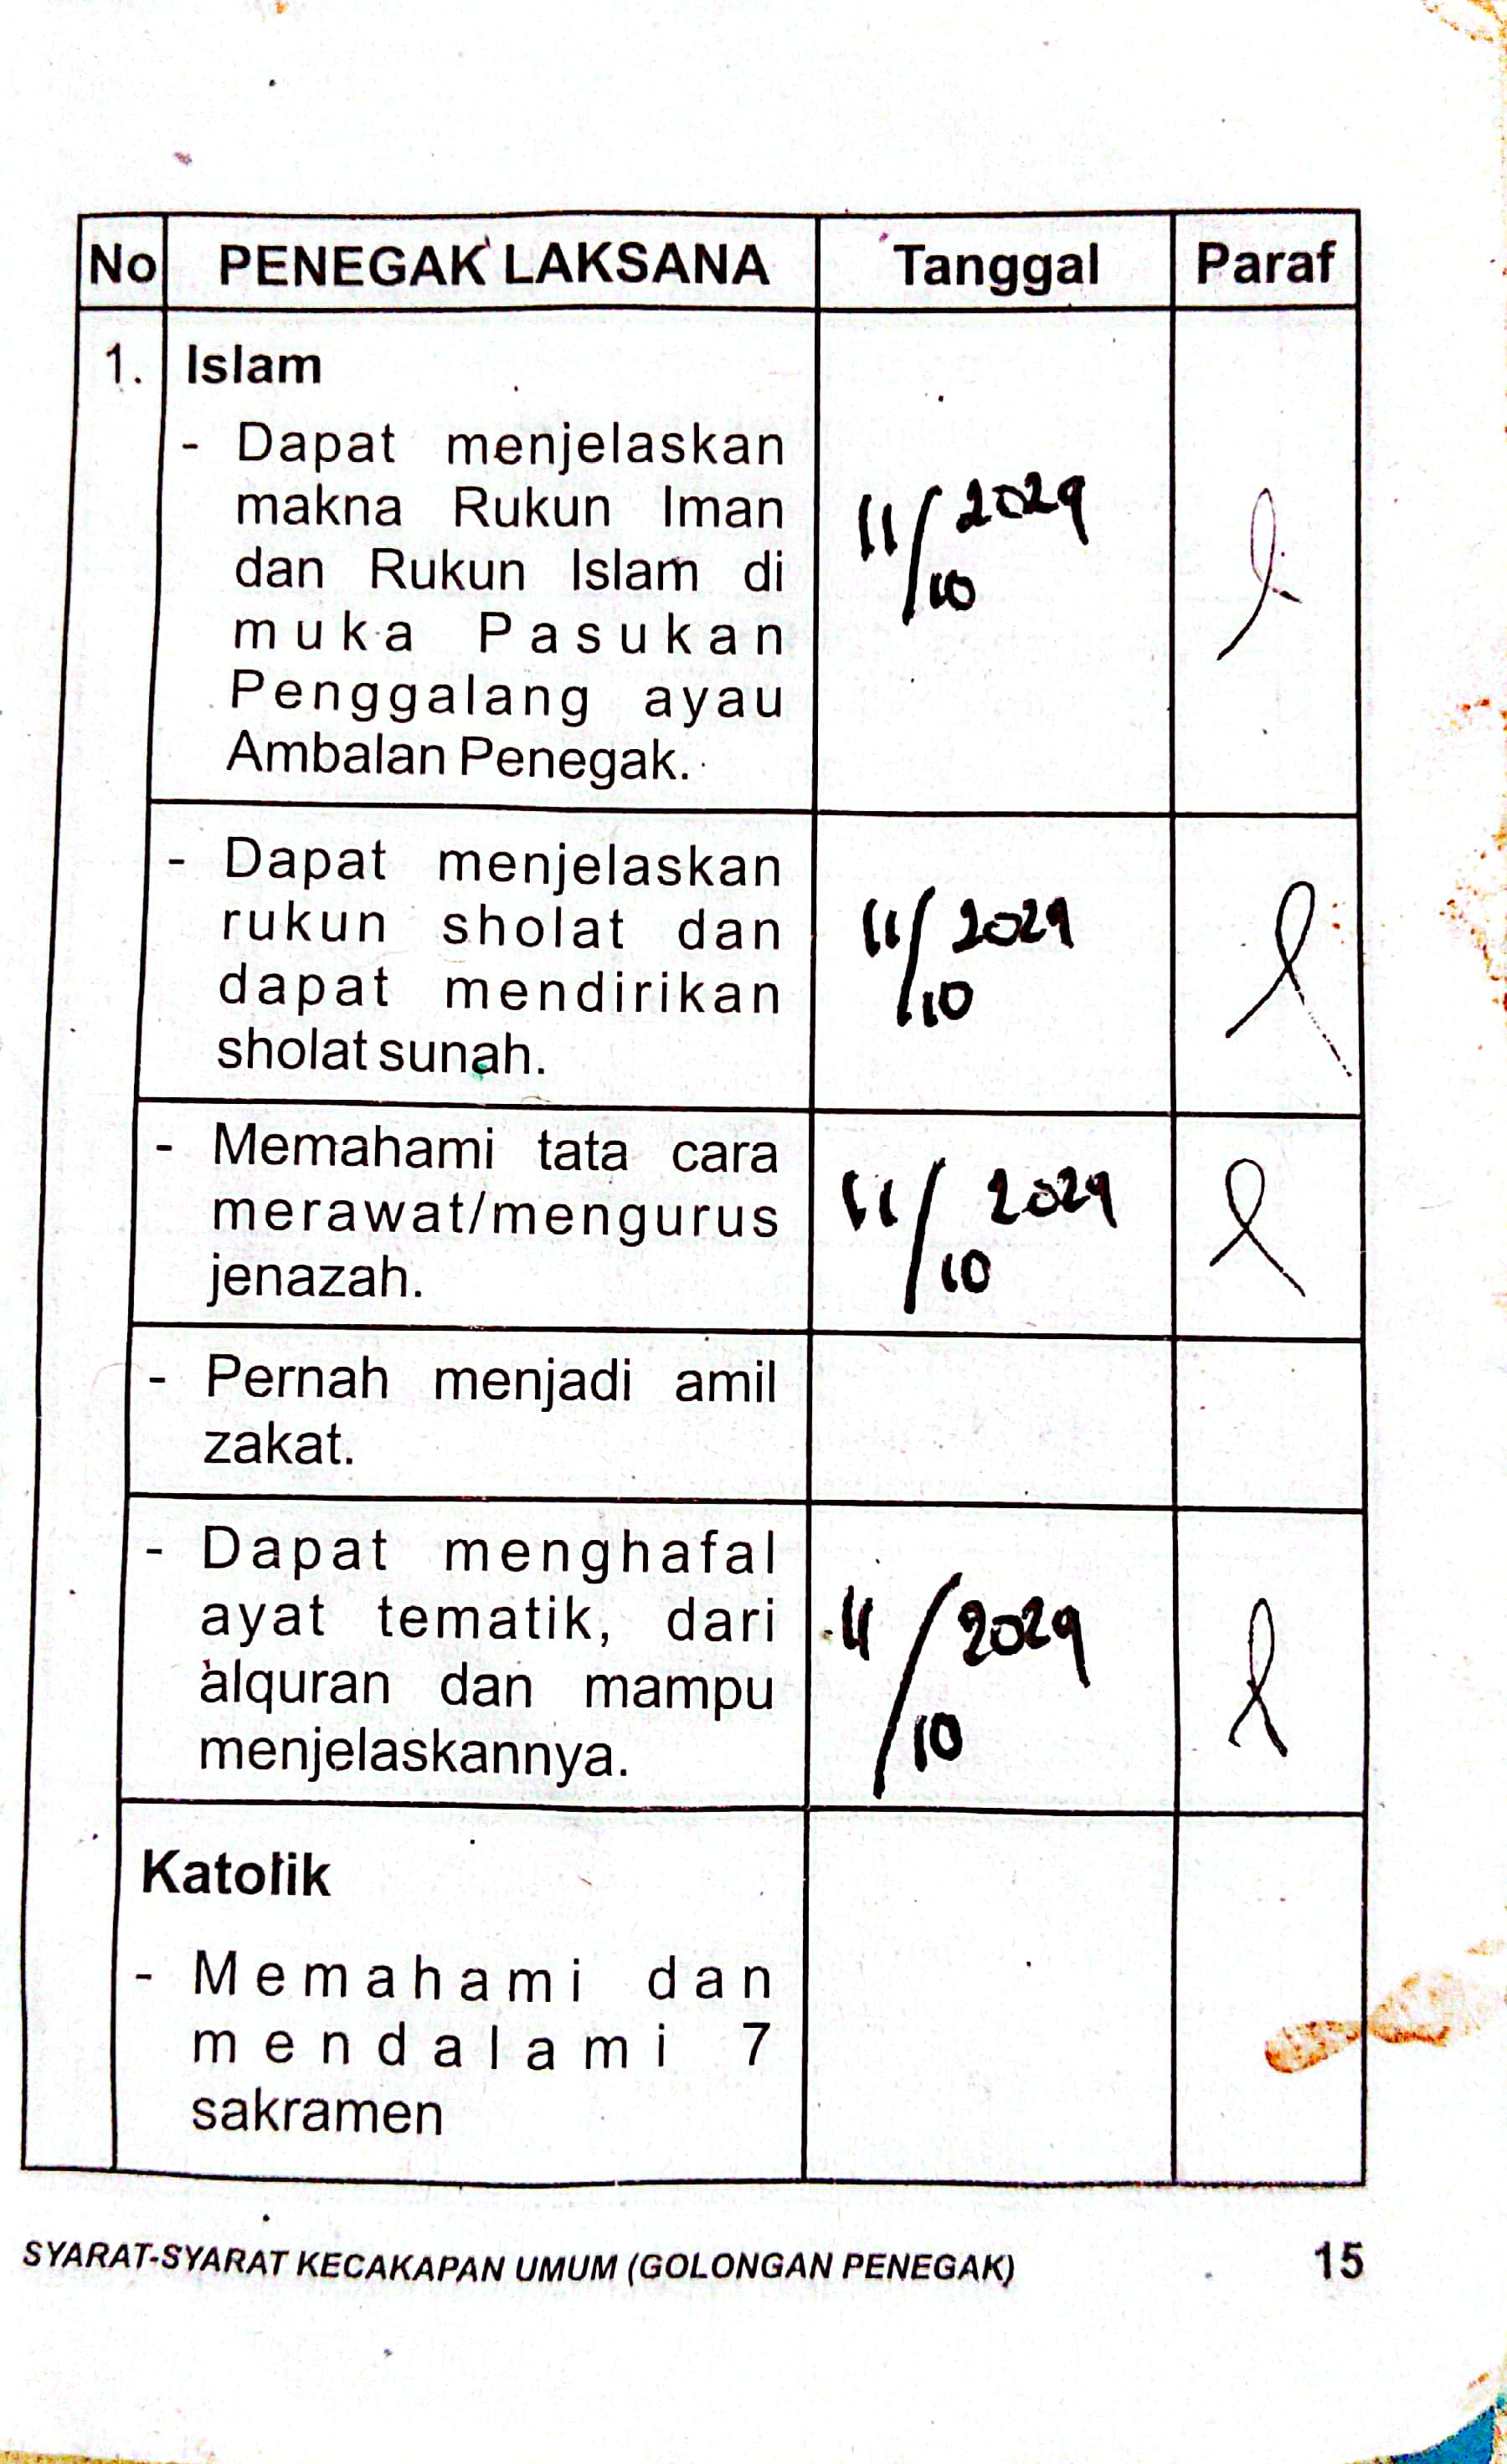 No PENEGAK LAKSANA Tanggal Paraf
1. Islam
- Dapat menjelaskan
makna Rukun Iman
dan Rukun Islam di
muka Pasukan
Penggalang ayau
Ambalan Penegak.
11/10 2029
- Dapat menjelaskan
rukun sholat dan
dapat mendirikan
sholat sunah.
11/10 2029
- Memahami tata cara
merawat/mengurus
jenazah.
11/10 2029
- Pernah menjadi amil
zakat.
- Dapat menghafal
ayat tematik, dari
alquran dan mampu
menjelaskannya.
11/10 2029
Katolik
- Memahami dan
mendalami 7
sakramen
SYARAT-SYARAT KECAKAPAN UMUM (GOLONGAN PENEGAK) 15